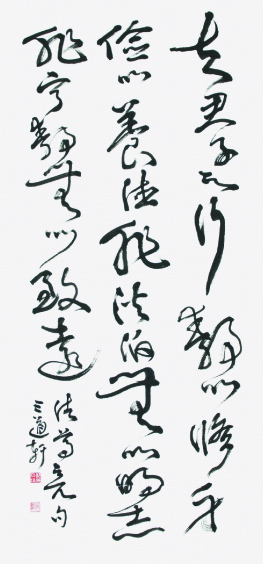 夫君子之行靜以修身
儉以養德非淡泊無以明志
非寧靜無以致遠
諸葛亮句
三道軒